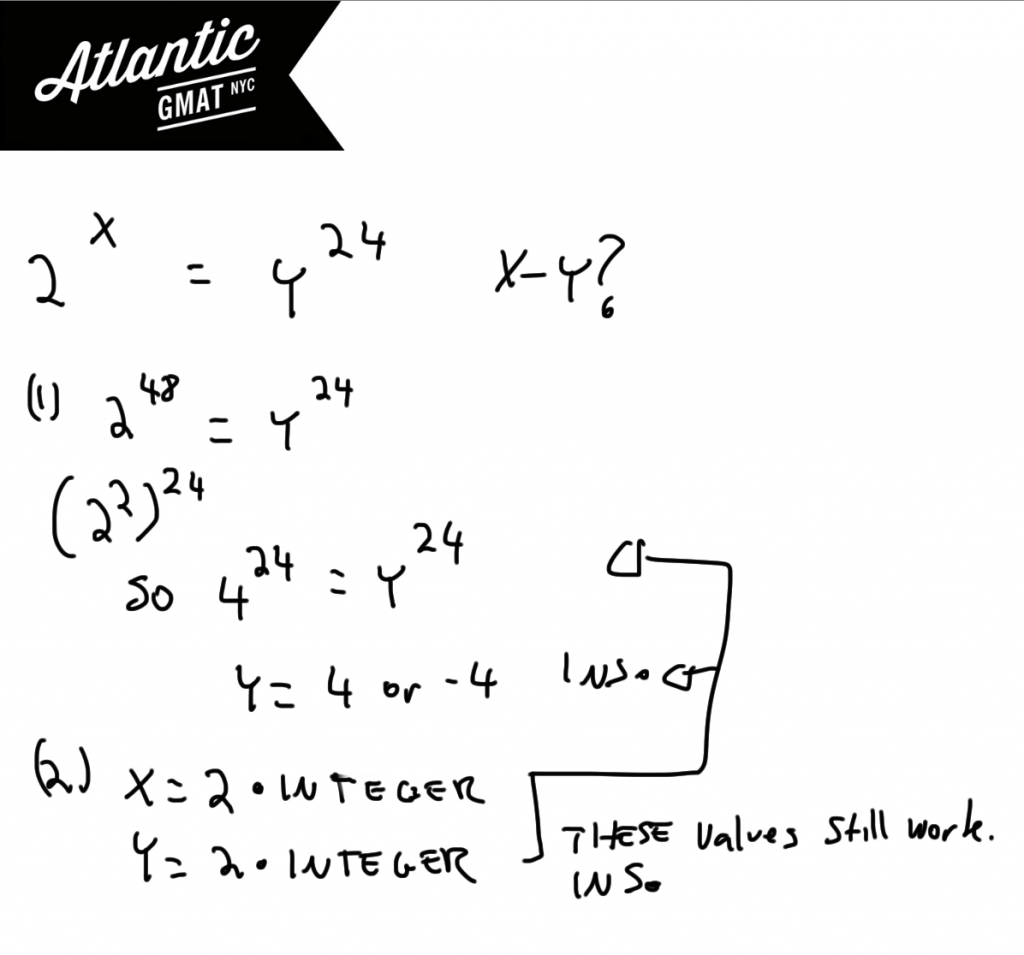 Atlantic
GMAT NYC
2^x = Y^24 X-Y?
(1) 2^48 = Y^24
(2^2)^24
So 4^24 = Y^24
Y = 4 or -4 INS.
(2) X = 2 • INTEGER
Y = 2 • INTEGER
THESE Values Still work.
INS.